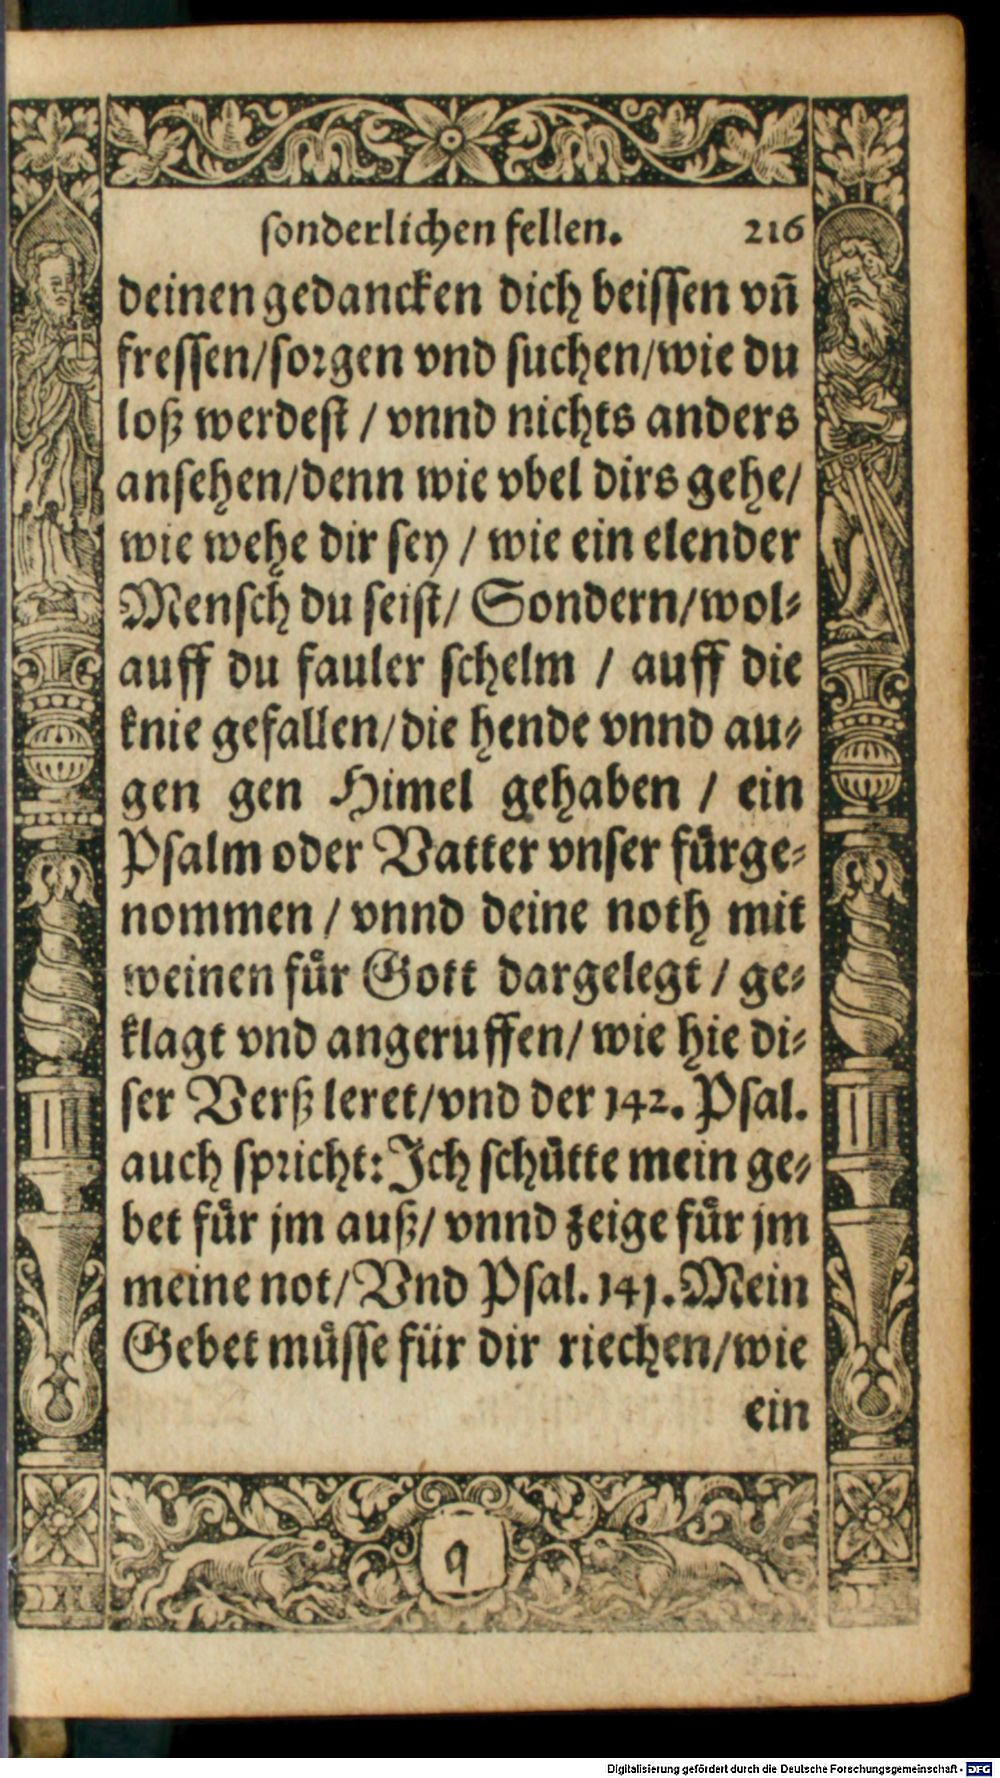 sonderlichen fellen. 216
deinen gedancken dich beissen vn̄
fressen/sorgen vnd suchen/wie du
loß werdest / vnnd nichts anders
ansehen/denn wie vbel dirs gehe/
wie wehe dir sey / wie ein elender
Mensch du seist/ Sondern/wol⸗
auff du fauler schelm / auff die
knie gefallen/die hende vnnd au⸗
gen gen Himel gehaben / ein
Psalm oder Vatter vnser fürge⸗
nommen / vnnd deine noth mit
weinen für Gott dargelegt / ge⸗
klagt vnd angeruffen/ wie hie di⸗
ser Verß leret/vnd der 142. Psal.
auch spricht: Ich schütte mein ge⸗
bet für jm auß/ vnnd zeige für jm
meine not/ Vnd Psal. 141. Mein
Gebet müsse für dir riechen/wie
ein
q
Digitalisierung gefördert durch die Deutsche Forschungsgemeinschaft - DFG